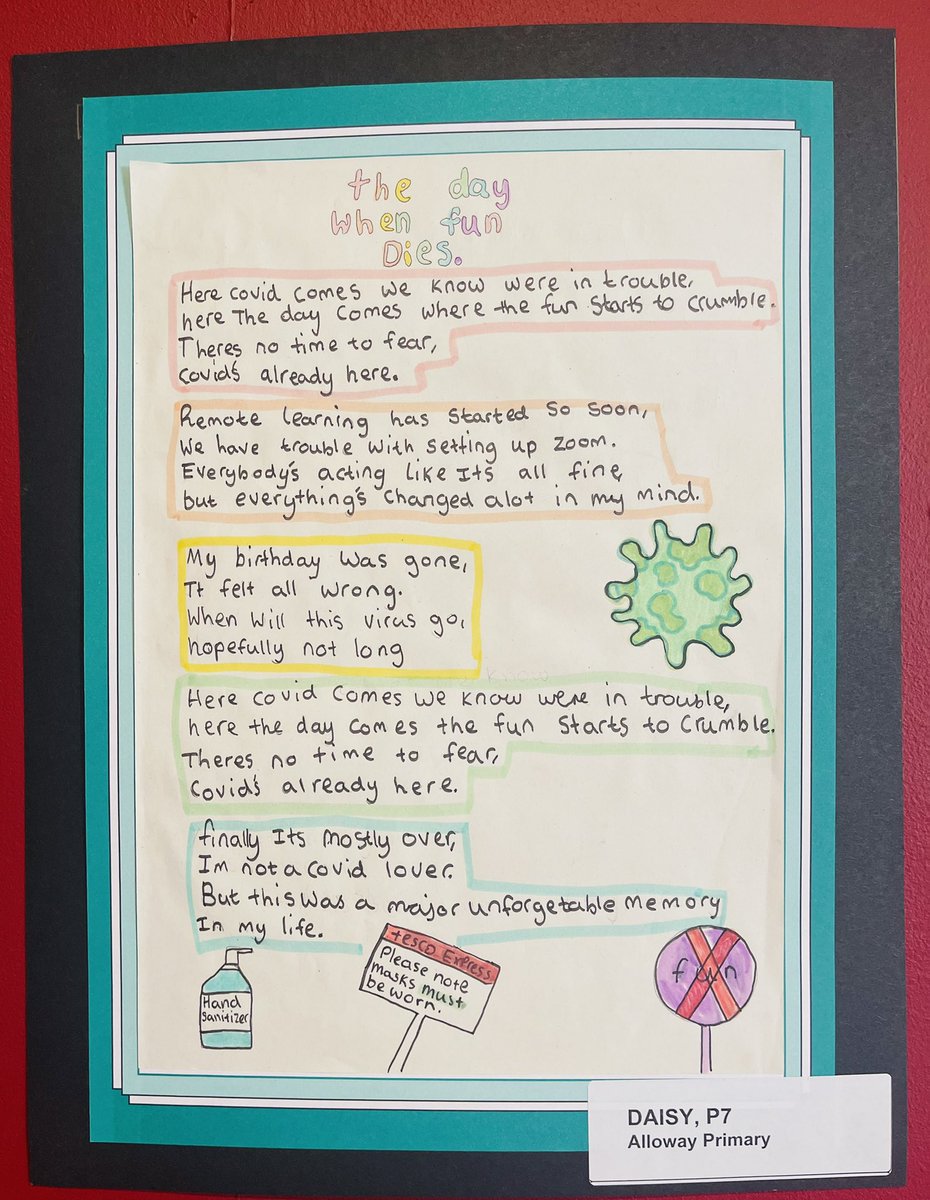 the day
when fun
Dies.
Here covid comes we know were in trouble,
here The day comes where the fun starts to crumble.
Theres no time to fear,
covid's already here.
Remote learning has started so soon,
We have trouble with setting up zoom.
Everybody's acting like Its all fine,
but everything's changed alot in my mind.
My birthday was gone,
It felt all wrong.
When will this virus go,
hopefully not long
Here covid comes we know were in trouble,
here the day comes the fun starts to crumble.
Theres no time to fear,
Covid's already here.
finally Its mostly over,
Im not a covid lover.
But this was a major unforgetable memory
In my life.
Hand
Sanitizer
tesco Express
Please note
masks must
be worn.
fun
DAISY, P7
Alloway Primary